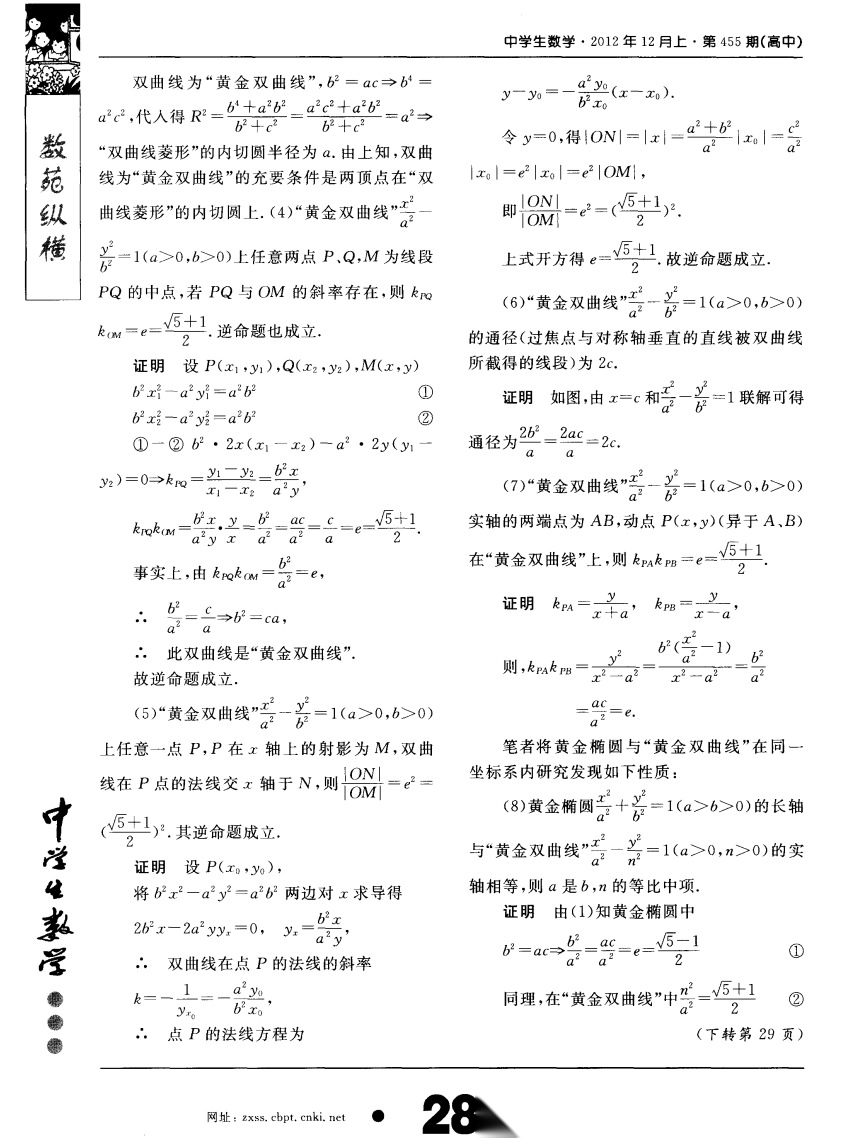 中学生数学·2012年12月上·第455期(高中)
数苑纵横
双曲线为“黄金双曲线”,b²=ac⇒b⁴=
a²c²,代入得 R²=(b⁴+a²b²)/(b²+c²)=(a²c²+a²b²)/(b²+c²)=a²⇒
“双曲线菱形”的内切圆半径为a.由上知,双曲
线为“黄金双曲线”的充要条件是两顶点在“双
曲线菱形”的内切圆上.(4)“黄金双曲线”x²/a²−
y²/b²=1(a>0,b>0)上任意两点P、Q,M为线段
PQ的中点,若PQ与OM的斜率存在,则k_PQ
k_OM=e=(√5+1)/2.逆命题也成立.
证明 设P(x₁,y₁),Q(x₂,y₂),M(x,y)
b²x₁²−a²y₁²=a²b² ①
b²x₂²−a²y₂²=a²b² ②
①−② b²·2x(x₁−x₂)−a²·2y(y₁−
y₂)=0⇒k_PQ=(y₁−y₂)/(x₁−x₂)=b²x/a²y,
k_PQk_OM=b²x/a²y·y/x=b²/a²=ac/a²=c/a=e=(√5+1)/2.
事实上,由k_PQk_OM=b²/a²=e,
∴ b²/a²=c/a⇒b²=ca,
∴ 此双曲线是“黄金双曲线”.
故逆命题成立.
(5)“黄金双曲线”x²/a²−y²/b²=1(a>0,b>0)
上任意一点P,P在x轴上的射影为M,双曲
线在P点的法线交x轴于N,则|ON|/|OM|=e²=
((√5+1)/2)².其逆命题成立.
证明 设P(x₀,y₀),
将b²x²−a²y²=a²b²两边对x求导得
2b²x−2a²yyₓ=0, yₓ=b²x/a²y,
∴ 双曲线在点P的法线的斜率
k=−1/y_x₀=−a²y₀/b²x₀,
∴ 点P的法线方程为
y−y₀=−a²y₀/b²x₀(x−x₀).
令y=0,得|ON|=|x|=(a²+b²)/a²|x₀|=c²/a²
|x₀|=e²|x₀|=e²|OM|,
即|ON|/|OM|=e²=((√5+1)/2)².
上式开方得e=(√5+1)/2.故逆命题成立.
(6)“黄金双曲线”x²/a²−y²/b²=1(a>0,b>0)
的通径(过焦点与对称轴垂直的直线被双曲线
所截得的线段)为2c.
证明 如图,由x=c和x²/a²−y²/b²=1联解可得
通径为2b²/a=2ac/a=2c.
(7)“黄金双曲线”x²/a²−y²/b²=1(a>0,b>0)
实轴的两端点为AB,动点P(x,y)(异于A、B)
在“黄金双曲线”上,则k_PAk_PB=e=(√5+1)/2.
证明 k_PA=y/(x+a), k_PB=y/(x−a),
则,k_PAk_PB=y²/(x²−a²)=b²(x²/a²−1)/(x²−a²)=b²/a²
=ac/a²=e.
笔者将黄金椭圆与“黄金双曲线”在同一
坐标系内研究发现如下性质:
(8)黄金椭圆x²/a²+y²/b²=1(a>b>0)的长轴
与“黄金双曲线”x²/a²−y²/n²=1(a>0,n>0)的实
轴相等,则a是b,n的等比中项.
证明 由(1)知黄金椭圆中
b²=ac⇒b²/a²=ac/a²=e=(√5−1)/2 ①
同理,在“黄金双曲线”中n²/a²=(√5+1)/2 ②
(下转第29页)
中学生数学
网址:zxss.cbpt.cnki.net ● 28